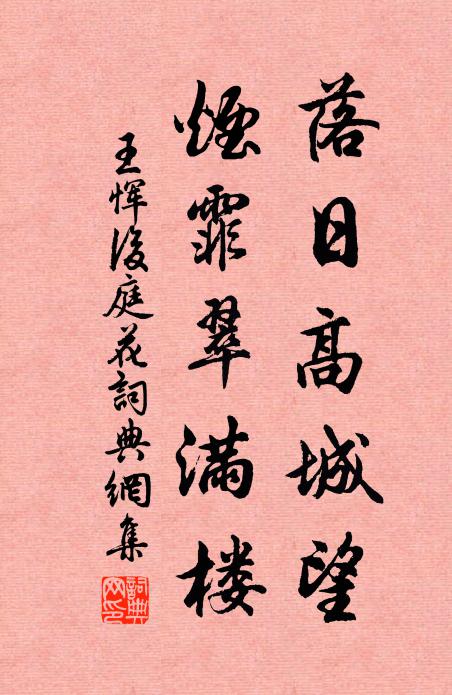 落日高城望
煙霏翠滿楼
王恽後庭花詞典網集
詞典網印